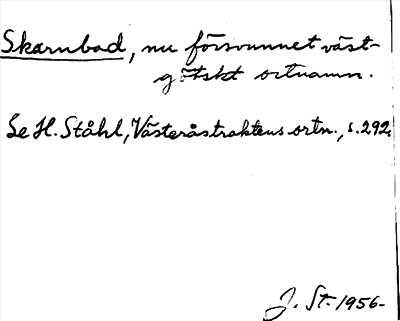 Skarnbad, nu försvunnet väst-
götskt ortnamn.
Se H. Ståhl, Västeråstraktens ortn., s. 292.
J. St. 1956-